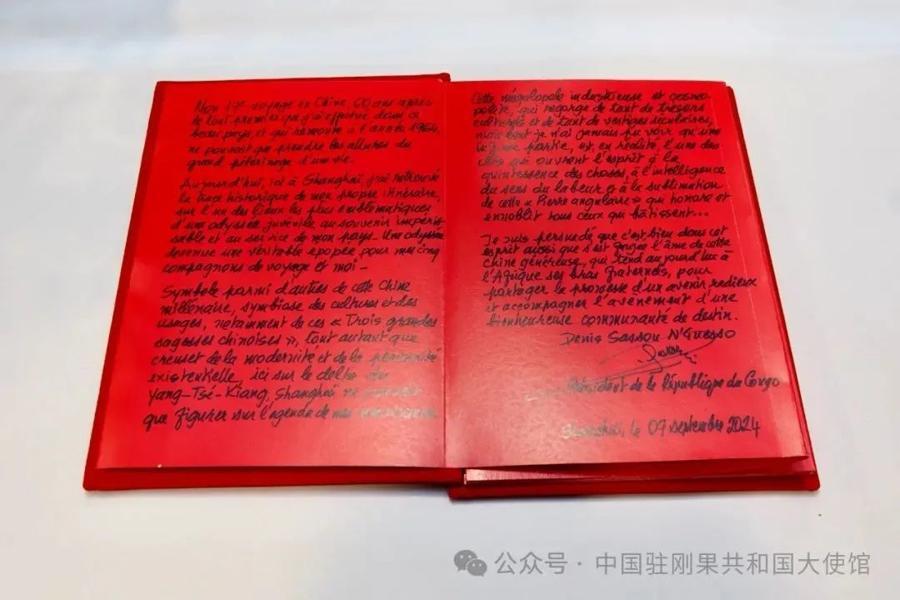 Mon 17e voyage en Chine 60 ans après
le tout premier que j'ai effectué dans ce
beau pays, et qui remonte à l'année 1964,
ne pouvait que prendre les allures du
grand pèlerinage d'une vie.
Aujourd'hui, ici à Shanghaï, j'ai retrouvé
la trace historique de mon propre itinéraire,
sur l'un des lieux les plus emblématiques
d'une odyssée juvénile au souvenir impéris-
sable et au service de mon pays. Une odyssée
devenue une véritable épopée pour mes cinq
compagnons de voyage et moi -
Symbole parmi d'autres de cette Chine
millénaire, symbiose des cultures et des
usages, notamment de ces « Trois grandes
sagesses chinoises », tout autant que
creuset de la modernité et de la
existentielle, ici sur le delta du
Yang-Tsé-Kiang, Shanghaï ne pouvait
que figurer sur l'agenda de mes
Cette mégalopole industrieuse et cosmo-
polite, qui regorge de tant de trésors
culturels et de tant de vestiges séculaires,
mais dont je n'ai jamais pu voir qu'une
infime partie, est, en réalité, l'une des
clés qui ouvrent l'esprit à la
quintessence des choses, à l'intelligence
du sens du labeur et à la sublimation
de cette « Pierre angulaire » qui honore et
ennoblit tous ceux qui bâtissent...
Je suis persuadé que c'est bien dans cet
esprit aussi que s'est forgée l'âme de cette
Chine généreuse, qui tend aujourd'hui à
l'Afrique ses bras fraternels, pour
partager la promesse d'un avenir radieux
et accompagner l'avènement d'une
bienheureuse communauté de destin.
Denis Sassou N'Guesso
Président de la République du Congo
Shanghaï, le 07 septembre 2024
公众号·中国驻刚果共和国大使馆